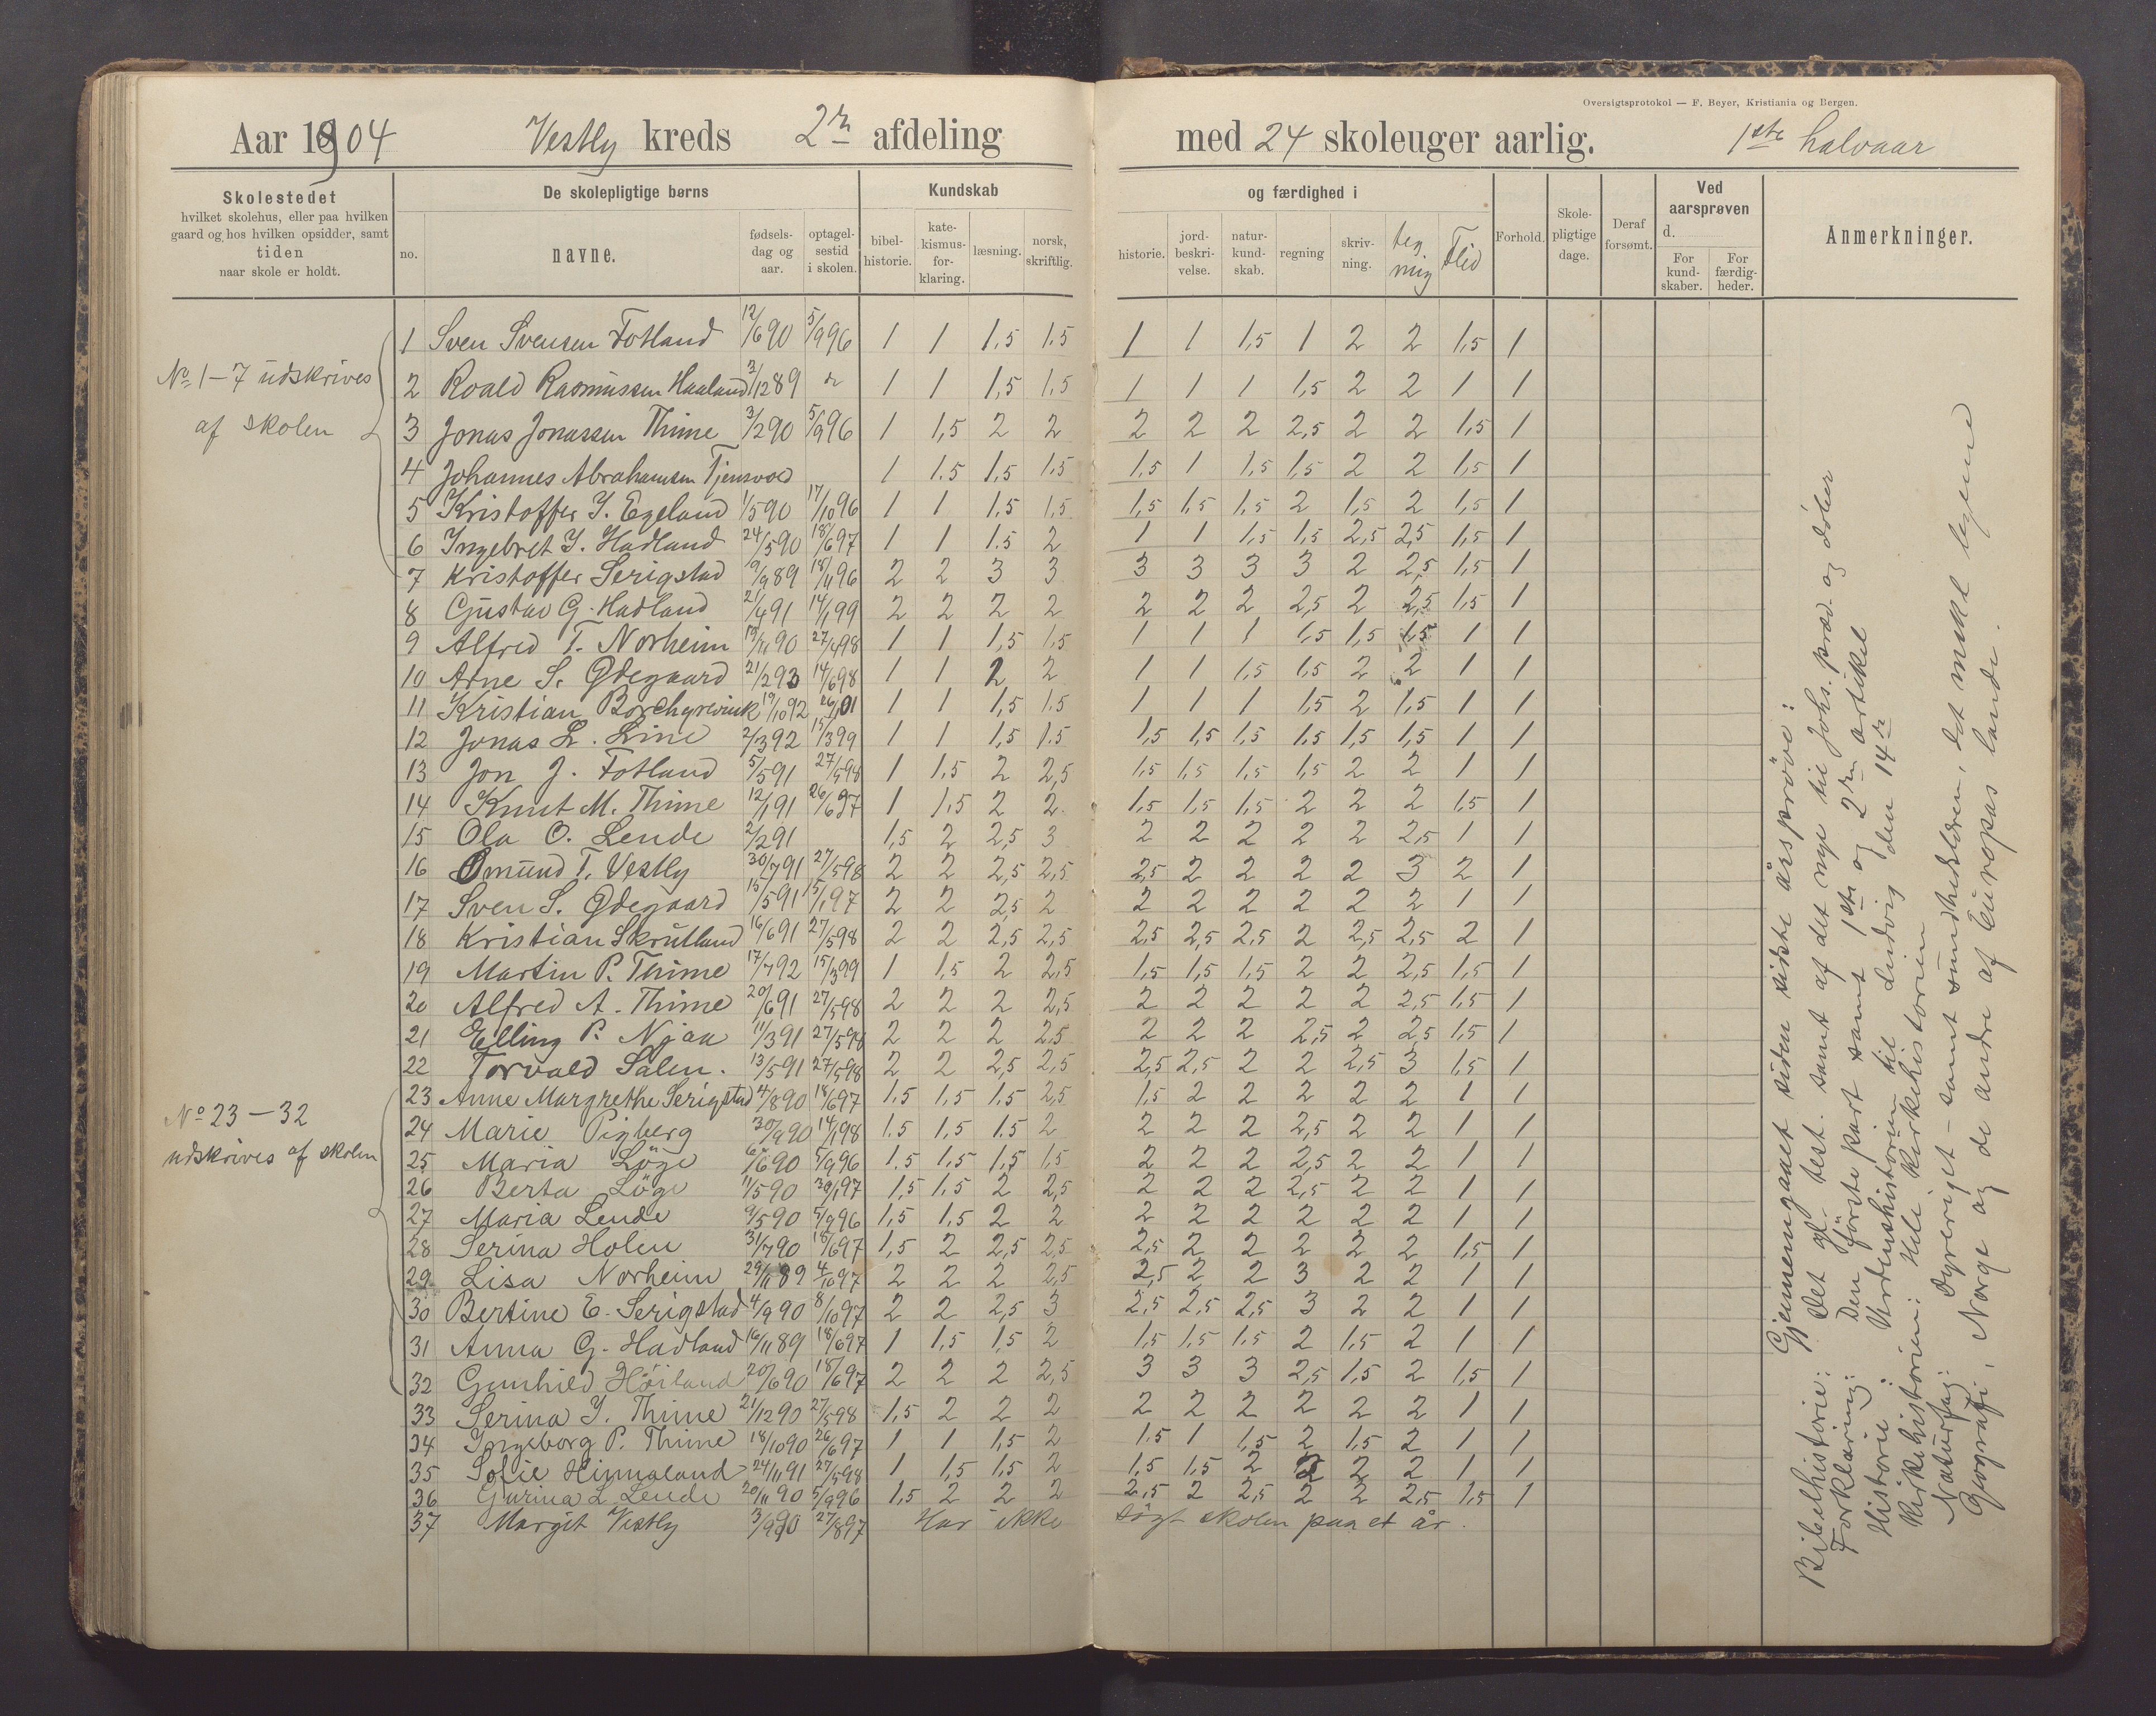 Oversigtsprotokol — F. Beyer, Kristiania og Bergen.
Aar 1904 Vestly kreds 2n afdeling med 24 skoleuger aarlig. 1ste halvaar
Skolestedet
hvilket skolehus, eller paa hvilken
gaard og hos hvilken opsidder, samt
tiden
naar skole er holdt.
De skolepligtige børns
no. navne. fødsels-dag og aar. optagel-sestid i skolen.
Kundskab og færdighed i
bibel-historie. kate-kismus-for-klaring. læsning. norsk, skriftlig. historie. jord-beskri-velse. natur-kund-skab. regning skriv-ning. teg ning Flid Forhold. Skole-pligtige dage. Deraf forsømt.
Ved aarsprøven d.
For kund-skaber. For færdig-heder.
Anmerkninger.
No 1–7 udskrives
af skolen
No 23–32
udskrives af skolen
1 Sven Svensen Fotland 12/6 90 5/9 96 1 1 1,5 1.5 1 1 1,5 1 2 2 1,5 1
2 Roald Rasmussen Haaland 3/12 89 " 1 1 1,5 1,5 1 1 1 1,5 2 2 1 1
3 Jonas Jonassen Thime 3/2 90 5/9 96 1 1,5 2 2 2 2 2 2,5 2 2 1,5 1
4 Johannes Abrahamsen Tjensvold 1 1.5 1,5 1.5 1.5 1 1,5 1,5 2 2 1,5 1
5 Kristoffer Y. Egeland 1/5 90 17/10 96 1 1 1,5 1,5 1,5 1,5 1,5 2 1,5 2 1,5 1
6 Ingebret Y. Hadland 24/5 90 18/6 97 1 1 1.5 2 1 1 1,5 1,5 2,5 2,5 1,5 1
7 Kristoffer Serigstad 9/9 89 18/11 96 2 2 3 3 3 3 3 3 2 2,5 1,5 1
8 Gustav G. Hadland 21/4 91 14/1 99 2 2 2 2 2 2 2 2,5 2 2,5 1,5 1
9 Alfred T. Norheim 19/11 90 27/4 98 1 1 1,5 1,5 1 1 1 1,5 1,5 1,5 1 1
10 Arne S. Ødegaard 21/2 93 14/6 98 1 1 2 2 1 1 1,5 1,5 2 2 1 1
11 Kristian Borchgrevink 19/10 92 26/1 01 1 1 1,5 1.5 1 1 1 1,5 2 1,5 1 1
12 Jonas L. Line 2/3 92 15/3 99 1 1 1,5 1.5 1,5 1,5 1,5 1,5 1,5 1,5 1 1
13 Jon J. Fotland 5/5 91 27/5 98 1 1,5 2 2,5 1,5 1,5 1,5 1,5 2 2 1 1
14 Knut M. Thime 12/1 91 26/6 97 1 1,5 2 2 1,5 1,5 1,5 2 2 2 1,5 1
15 Ola O. Lende 2/2 91 1,5 2 2,5 3 2 2 2 2 2 2,5 1 1
16 Omund T. Vestly 30/7 91 27/5 98 2 2 2,5 2,5 2,5 2 2 2 2 3 2 1
17 Sven S. Ødegaard 15/5 91 15/1 97 2 2 2,5 2 2 2 2 2 2 2 1 1
18 Kristian Skrudland 16/6 91 27/5 98 2 2 2,5 2,5 2,5 2,5 2,5 2 2,5 2,5 2 1
19 Martin P. Thime 17/7 92 15/3 99 1 1,5 2 2,5 1,5 1,5 1,5 2 2 2,5 1,5 1
20 Alfred A. Thime 20/6 91 27/5 98 2 2 2 2,5 2 2 2 2 2 2,5 1,5 1
21 Elling P. Njaa 11/3 91 27/5 98 2 2 2 2.5 2 2 2 2,5 2 2,5 1,5 1
22 Torvald Salen. 13/5 91 27/5 98 2 2 2,5 2,5 2,5 2,5 2 2 2,5 3 1,5 1
23 Anne Margrethe Serigstad 4/8 90 18/6 97 1.5 1,5 1.5 2,5 1.5 2 2 2 2 2 1 1
24 Marie Pigberg 30/9 90 14/1 98 1.5 1,5 1.5 2 2 2 2 2,5 2 2 1 1
25 Maria Löge 6/6 90 5/9 96 1.5 1,5 1,5 1,5 2 2 2 2,5 2 2 1 1
26 Berta Löge 11/5 90 30/1 97 1,5 1,5 2 2,5 2 2 2 2,5 2 2 1 1
27 Maria Lende 9/5 90 5/9 96 1,5 1,5 2 2 2 2 2 2 2 2 1 1
28 Serina Holen 31/7 90 18/6 97 1,5 2 2,5 2,5 2,5 2 2 2 2 2 1,5 1
29 Lisa Norheim 29/11 89 4/10 97 2 2 2 2,5 2,5 2 2 3 2 2 1 1
30 Bertine E. Serigstad 4/9 90 8/10 97 2 2 2,5 3 2,5 2,5 2,5 3 2 2 1 1
31 Anna G. Hadland 16/11 89 18/6 97 1 1,5 1,5 2 1,5 1,5 1,5 2 1,5 2 1 1
32 Gunhild Höiland 20/6 90 18/6 97 2 2 2 2,5 3 3 3 2,5 1,5 2 1,5 1
33 Serina Y. Thime 21/12 90 27/5 98 1,5 2 2 2 2 2 2 2 2 2 1 1
34 Ingeborg P. Thime 18/10 90 26/6 97 1 1 1,5 2 1.5 1 1,5 2 1,5 2 1 1
35 Sofie Hinnaland 24/11 91 27/5 98 1 1,5 1,5 2 1,5 1,5 2 2 2 2 1 1
36 Gurina L. Lende 20/11 90 5/9 96 1,5 2 2 2 2,5 2 2,5 2 2 2,5 1,5 1
37 Margit Vestly 3/9 90 27/8 97 Har ikke søgt skolen paa et år.
Gjennemgaaet siden sidste årsprøve:
Bibelhistorie: Det gl. test. samt af det nye til Johs. præd. og døler
Forklaring: Den første part samt 1ste og 2den artikel
Historie: Verdenshistorien til Ludvig den 14de
Kirkehistorie: Hele kirkehistorien
Naturfag: Dyreriget – samt sundhedslæren, det mskl. legeme
Geografi: Norge og de andre af Europas lande.